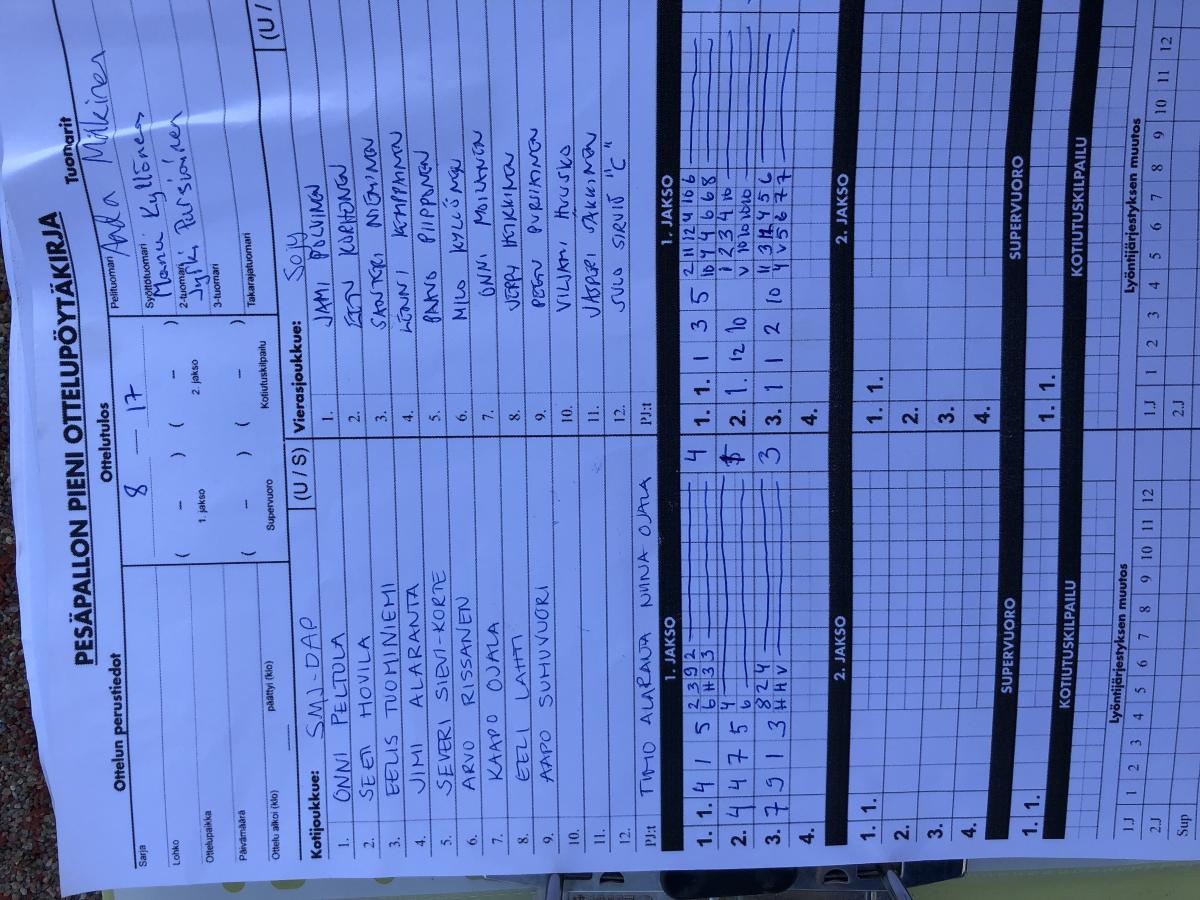 PESÄPALLON PIENI OTTELUPÖYTÄKIRJA
Ottelun perustiedot
Sarja
Lohko
Ottelupaikka
Päivämäärä
Ottelu alkoi (klo) päättyi (klo)
Ottelutulos
8 — 17
( – ) ( – )
1. jakso 2. jakso
( – ) ( – )
Supervuoro Kotiutuskilpailu
Tuomarit
Pelituomari
Syöttötuomari Manu Kyllönen
2-tuomari Jyrki Pursiainen
3-tuomari
Takarajatuomari
Kotijoukkue: SMJ-DAP (U / S)
1. ONNI PELTOLA
2. SEETI HOVILA
3. EELIS TUOMINIEMI
4. JIMI ALARANTA
5. SEVERI SIEVI-KORTE
6. ARVO RISSANEN
7. KAAPO OJALA
8. EELI LAHTI
9. AAPO SUHUVUORI
10.
11.
12.
PJ:t TIMO ALARANTA NIINA OJALA
Vierasjoukkue: SOJY (U /
1. JAMI POLVINEN
2. EETU KORHONEN
3. SANTERI NIEMINEN
4. LENNI KEMPPAINEN
5. PAAVO PIIPPONEN
6. MILO KYLLÖNEN
7. ONNI MOILANEN
8. JERE HEIKKINEN
9. PEETU PURIAINEN
10. VILJAMI HUUSKO
11. JASPERI JAKKINEN
12. SULO SIRVIÖ "C"
PJ:t
1. JAKSO
1. 1. 4 1 5 2 3 9 2 4
6 H 3 3
2. 4 4 7 5 4
6
3. 7 9 1 3 8 2 4 3
H H V
4.
1. JAKSO
1. 1. 1 3 5 2 11 12 4 10 6
10 4 4 6 6 8
2. 1. 12 10 1 2 3 4 10
V 10 10 10 10
3. 1 1 2 10 11 3 12 4 5 6
4 V 5 6 7 7
4.
2. JAKSO
1. 1.
2.
3.
4.
2. JAKSO
1. 1.
2.
3.
4.
SUPERVUORO
1. 1.
SUPERVUORO
1. 1.
KOTIUTUSKILPAILU
KOTIUTUSKILPAILU
Lyöntijärjestyksen muutos
1.J 1 2 3 4 5 6 7 8 9 10 11 12
2.J
Sup
Lyöntijärjestyksen muutos
1.J 1 2 3 4 5 6 7 8 9 10 11 12
2.J